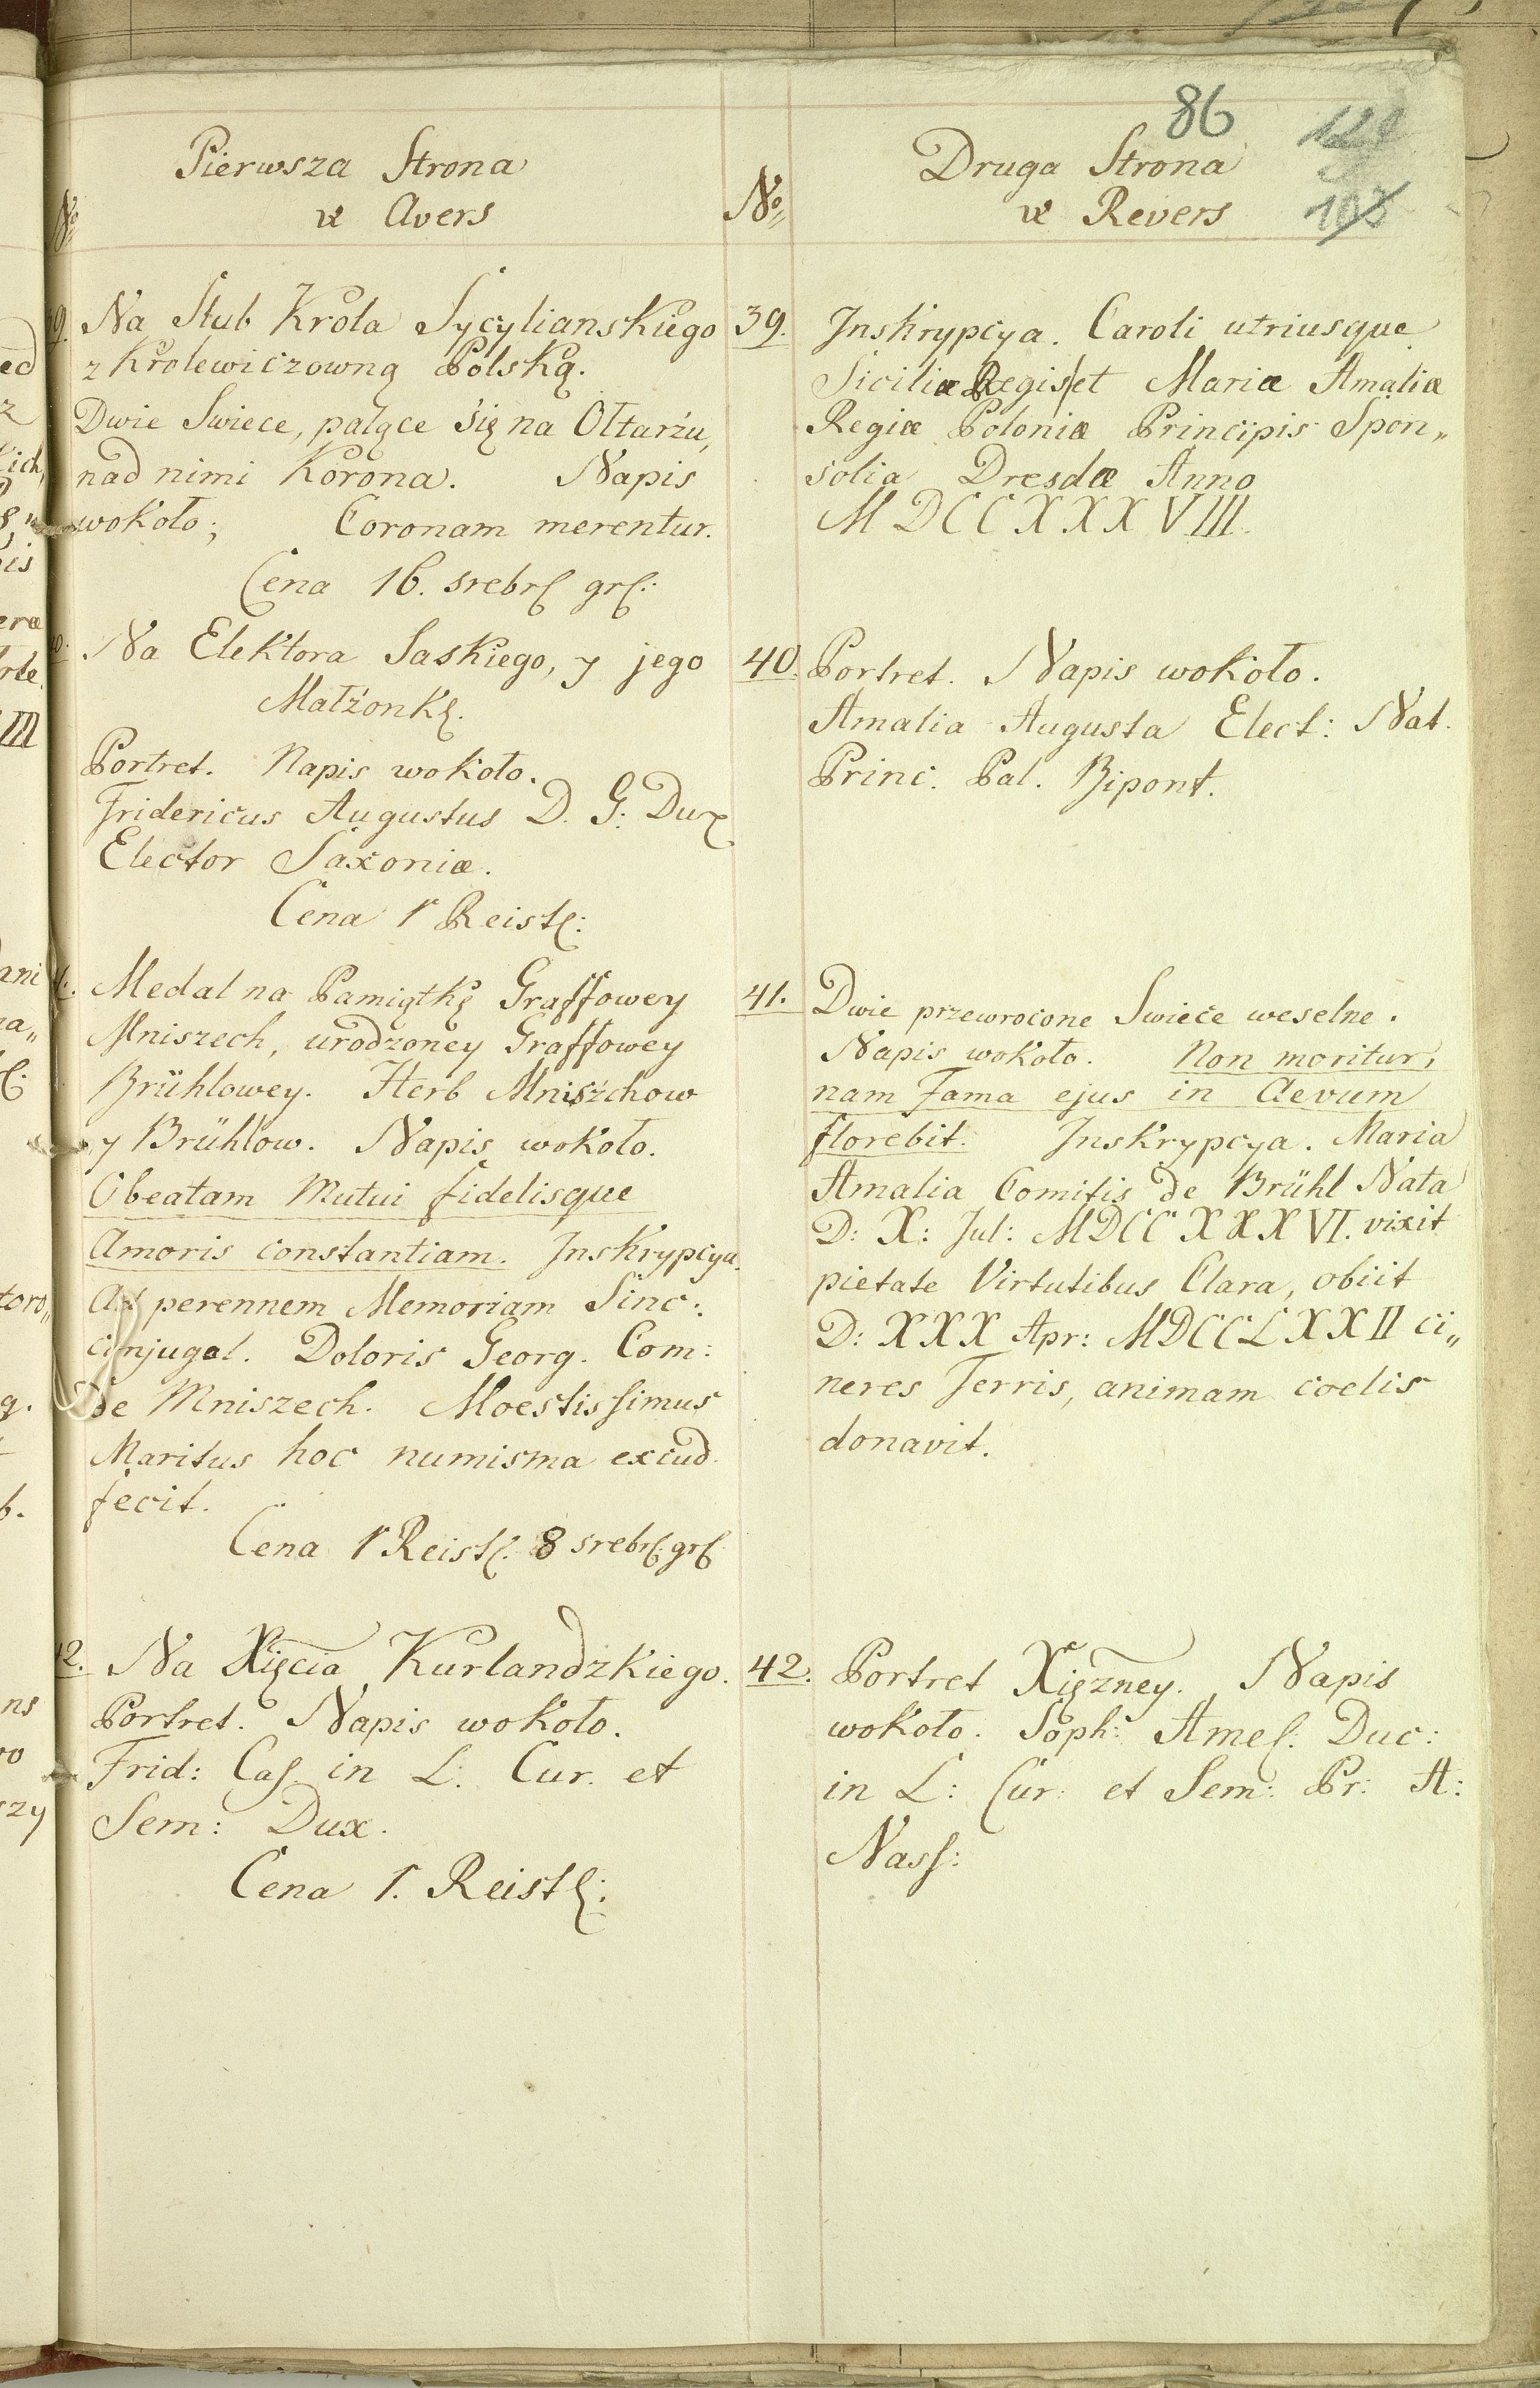 86
103
Pierwsza Strona
Avers
No
Druga Strona
Revers
No
Na Ślub Krola Sycylianskiego
z Krolewiczowną Polską.
Dwie Swiece, palące się na Ołtarżu,
nad nimi Korona. Napis
wokoło; Coronam merentur.
Cena 16. srebr: gr:
39.
Inskrypcya. Caroli utriusque
Siciliæ Regis et Mariæ Amaliæ
Regiæ Poloniæ Principis Spon„
solia Dresdæ Anno
MDCCXXXVIII.
Na Elektora Saskiego, y jego
Małżonkę.
Portret. Napis wokoło.
Fridericus Augustus D. G: Dux
Elector Saxoniæ.
Cena 1 Reist:
40.
Portret. Napis wokoło.
Amalia Augusta Elect: Nat.
Princ. Pal. Bipont.
Medal na Pamiątkę Graffowey
Mniszech, urodzoney Graffowey
Brühlowey. Herb Mniszchow
y Brühlow. Napis wokoło.
Obeatam Mutui fidelisque
Amoris constantiam. Inskrypcya.
perennem Memoriam Sinc:
conjugal. Doloris Georg. Com:
de Mniszech. Moestissimus
Maritus hoc numisma excud.
fecit.
Cena 1 Reist: 8 srebr: gr:
41.
Dwie przewrocone Swiece weselne.
Napis wokoło. Non moritur,
nam Fama ejus in Aevum
florebit. Inskrypcya. Maria
Amalia Comitis de Brühl Nata
D: X: Jul: MDCCXXXVI. vixit
pietate Virtutibus Clara, obiit
D: XXX Apr: MDCCLXXII ci„
neres Terris, animam coelis
donavit.
Na Xięcia Kurlandzkiego.
Portret. Napis wokoło.
Frid: Cas. in L. Cur. et
Sem: Dux.
Cena 1. Reist:
42.
Portret Xiężney. Napis
wokoło. Soph: Amel: Duc:
in L: Cur: et Sem: Pr: A:
Nass: